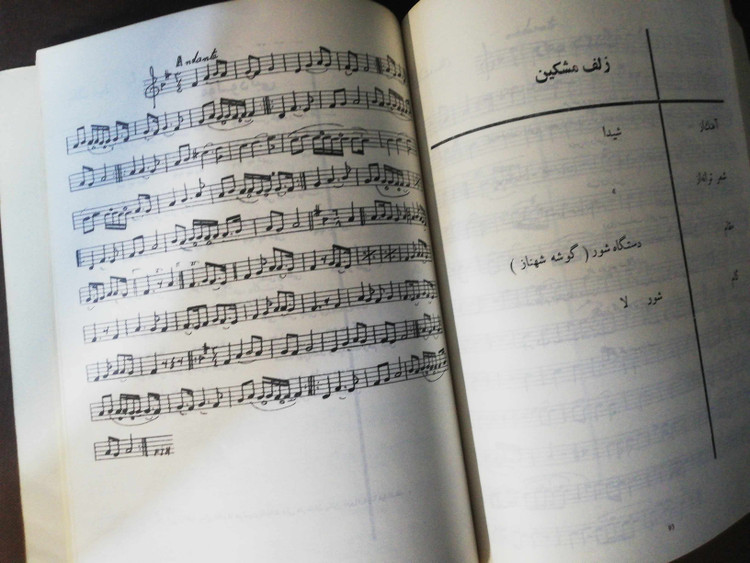 Andante
FIN
زلف مشکین
آهنگساز شیدا
شعر ترانه از "
مقام دستگاه شور ( گوشه شهناز )
گام شور لا